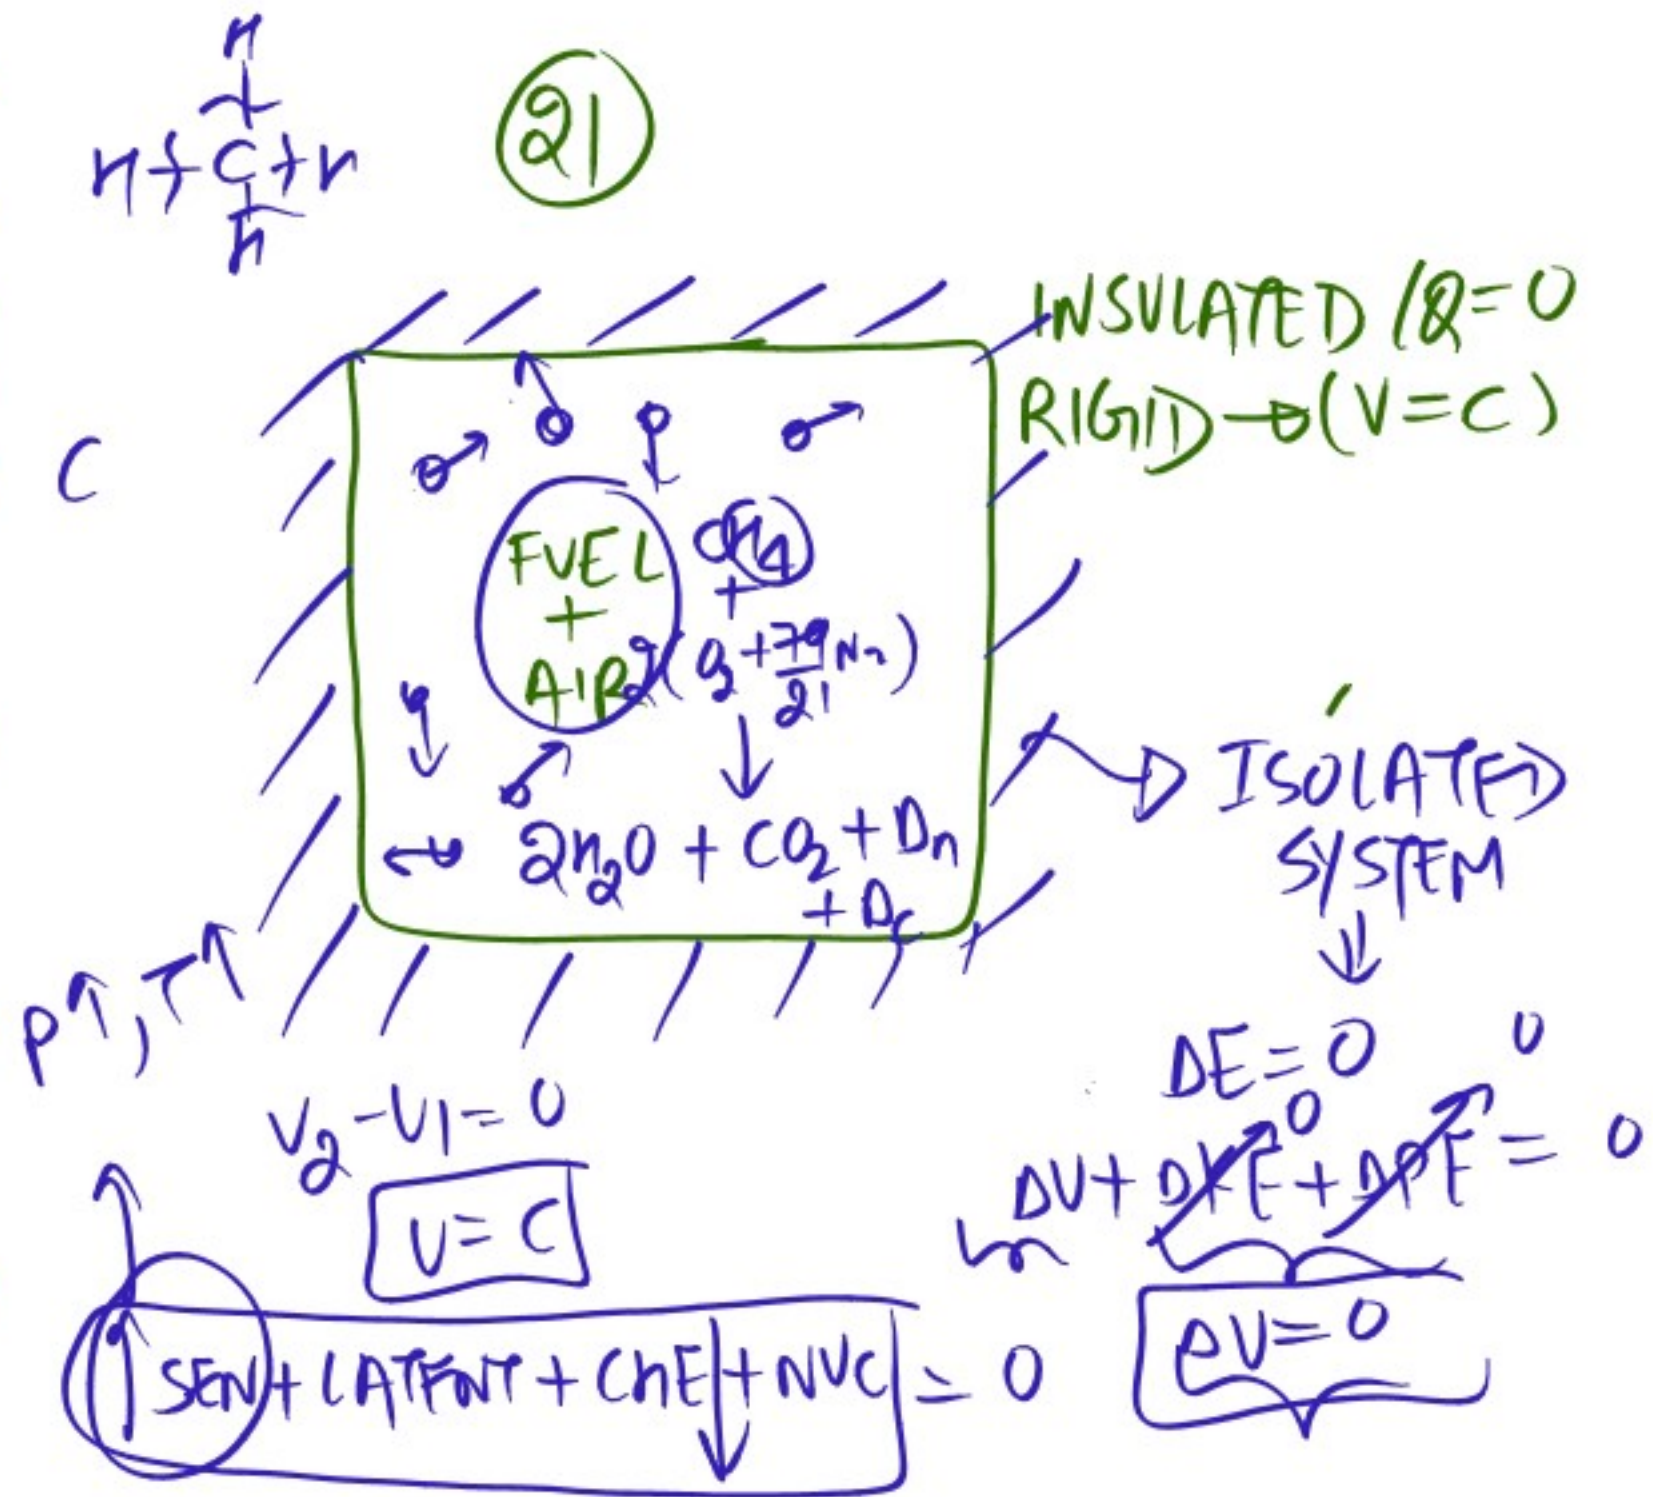 H
H+C+H
H
21
INSULATED /Q=0
RIGID→(V=C)
C
FUEL
+
AIR
CH4
+
2(O2+79/21 N2)
↓
2H2O + CO2 + DH
+ DC
ISOLATED
SYSTEM
⇓
P↑, T↑
DE=0
0
0
DU+DKE+DPE=0
U2-U1=0
U=C
DU=0
SEN+LATENT+CHE+NUC=0